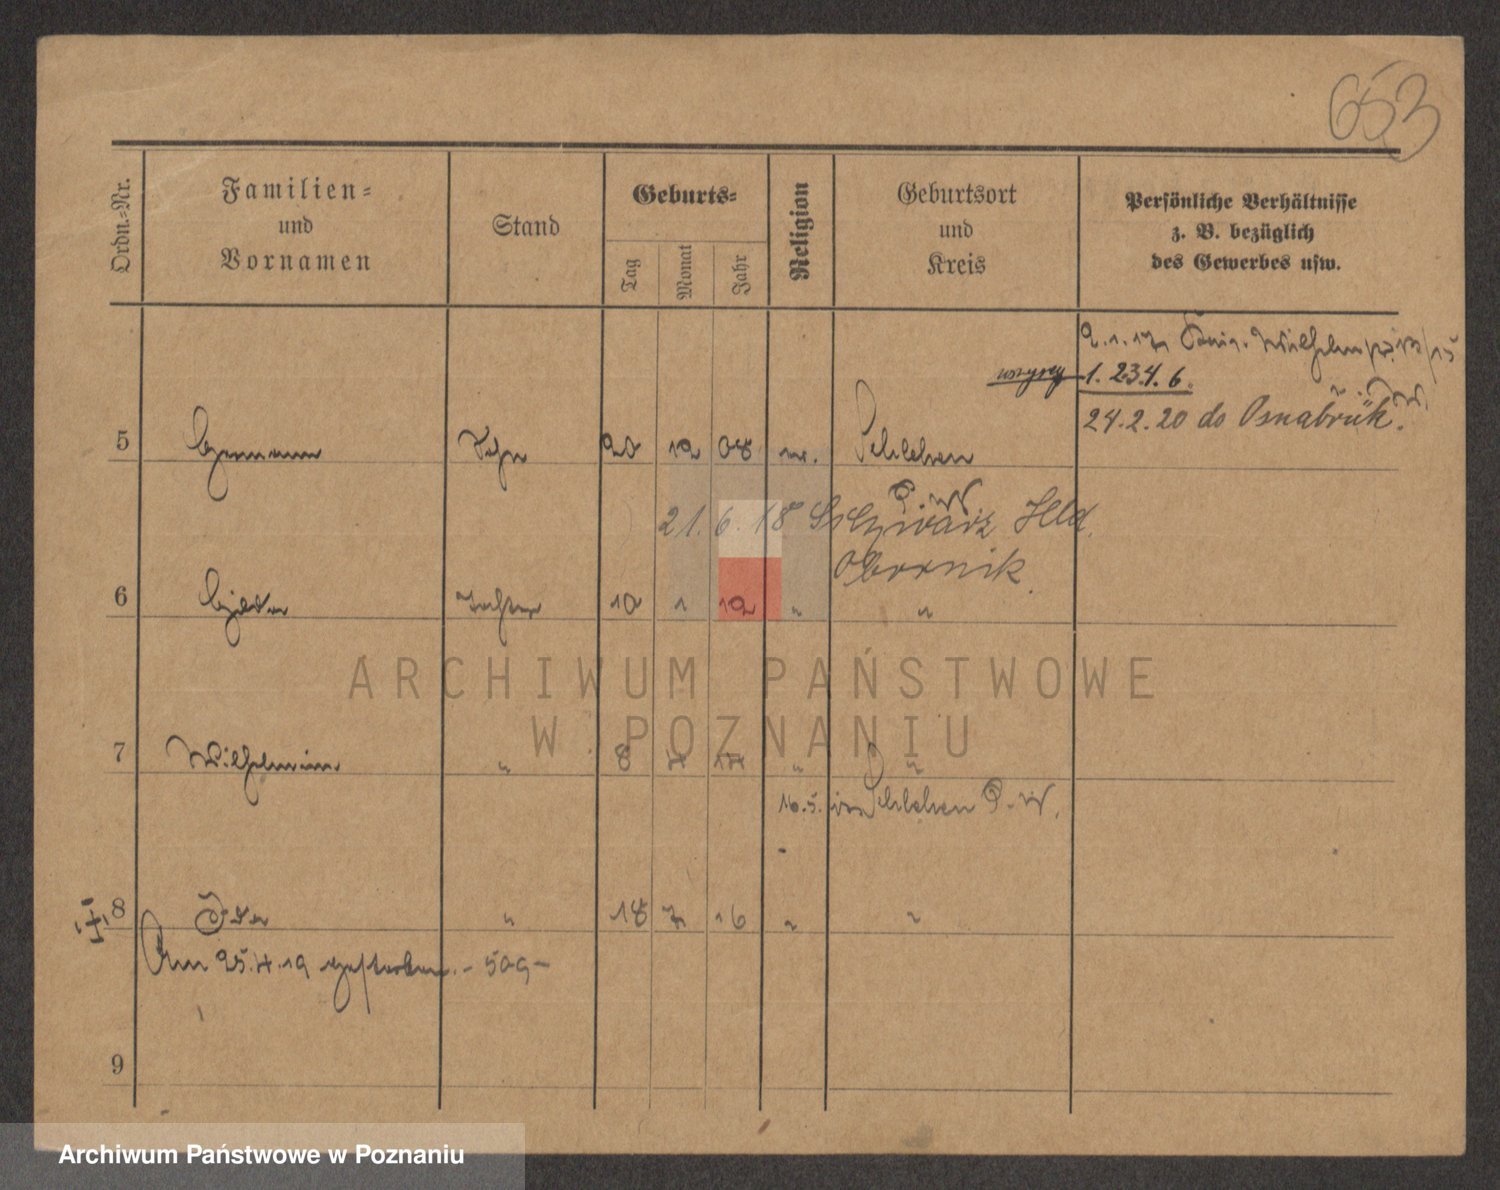 653
Ordn.-Nr.
Familien-
und
Vornamen
Stand
Geburts-
Tag
Monat
Jahr
Religion
Geburtsort
und
Kreis
Persönliche Verhältnisse
z. B. bezüglich
des Gewerbes usw.
2.1.17 Wilhelm 15
1.234.6.
24.2.20 do Osnabrük.
5 Hermann Sohn 20 12 08
21.6.18 Schwarz Hld
Obornik
6 Tochter 10 1 12 " "
ARCHIWUM PAŃSTWOWE
W POZNANIU
7 Wilhelmine " 8 4 14 " "
16.5. P. W.
8 Ida " 18 7 16 " "
Am 25.4.19 gestorben. - 509 -
9
Archiwum Państwowe w Poznaniu